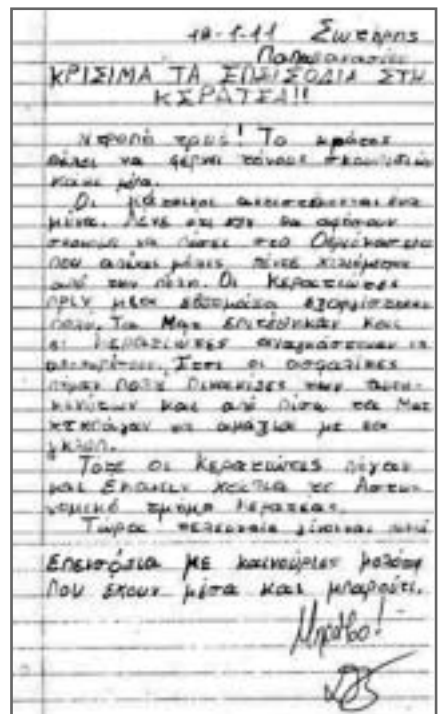 18-1-11 Σωτήρης
ΚΡΙΣΙΜΑ ΤΑ ΕΠΕΙΣΟΔΙΑ ΣΤΗ
ΚΕΡΑΤΕΑ!!
Ντροπή τους! Το κράτος
θέλει να φέρνει τόνους σκουπιδιών
κάθε μέρα.
Οι κάτοικοι ένα
μήνα. Λένε ότι δεν θα αφήσουν
να πέσει στο
που απέχει μόλις πέντε χιλιόμετρα
από την πόλη. Οι Κερατιώτες
πριν μια εβδομάδα εξοργίστηκαν
πολύ. Τα Ματ επιτέθηκαν και
οι Κερατιώτες αναγκάστηκαν να
Έτσι οι ασφαλίτες
πήραν πολύ πινακίδες των αυτο-
κινήτων και από πίσω τα Ματ
τα αμάξια με τα
γκλοπ.
Τότε οι Κερατιώτες πήγαν
και έκαναν το Αστυ-
νομικό τμήμα Κερατέας.
Τώρα τελευταία γίνονται
Επεισόδια με καινούριες μολότοφ
που έχουν μέσα και μπαρούτι.
Μπράβο!